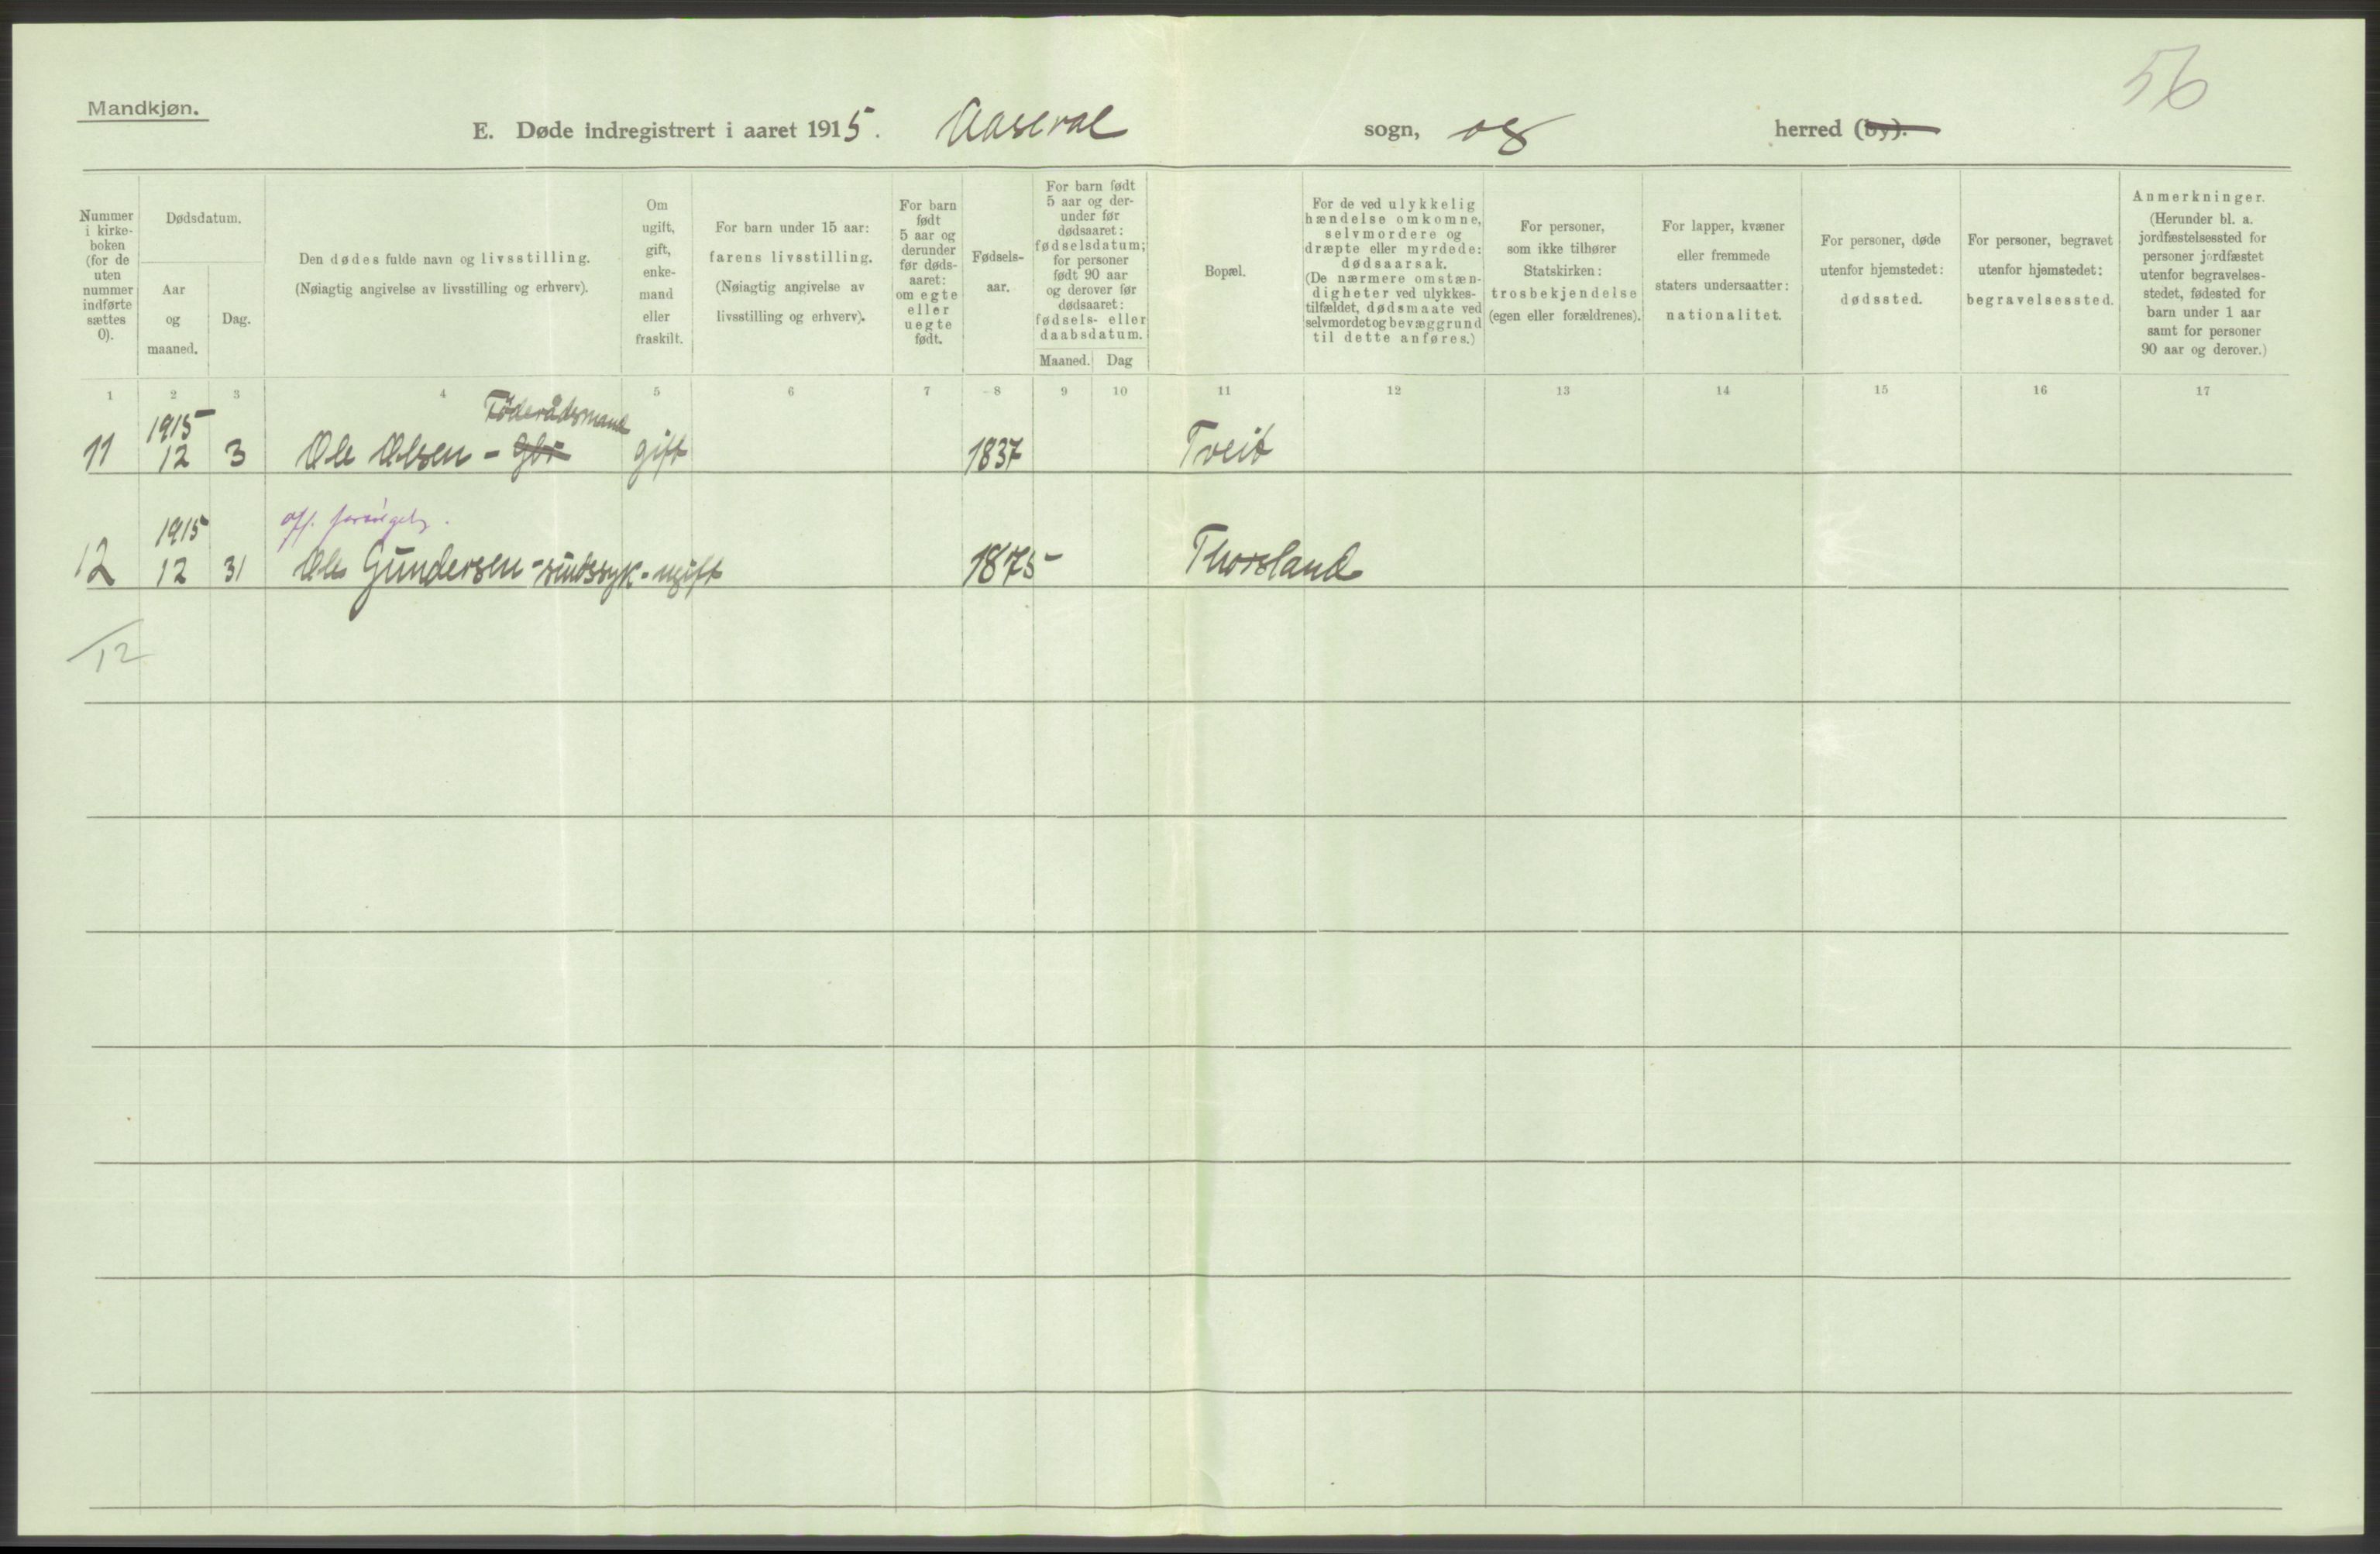 56
Mandkjøn.
E. Døde indregistrert i aaret 1915. Aaseral sogn, og herred (by).
Nummer i kirke-boken (for de uten nummer indførte sættes 0).
Dødsdatum.
Aar og maaned.
Dag.
Den dødes fulde navn og livsstilling.
(Nøiagtig angivelse av livsstilling og erhverv).
Om ugift, gift, enke-mand eller fraskilt.
For barn under 15 aar: farens livsstilling.
(Nøiagtig angivelse av livsstilling og erhverv).
For barn født 5 aar og derunder før døds-aaret: om egte eller uegte født.
Fødsels-aar.
For barn født 5 aar og der-under før dødsaaret: fødselsdatum; for personer født 90 aar og derover før dødsaaret: fødsels- eller daabsdatum.
Maaned. Dag
Bopæl.
For de ved ulykkelig hændelse omkomne, selvmordere og dræpte eller myrdede: dødsaarsak.
(De nærmere omstæn-digheter ved ulykkes-tilfældet, dødsmaate ved selvmordet og bevæggrund til dette anføres.)
For personer, som ikke tilhører Statskirken: trosbekjendelse (egen eller forældrenes).
For lapper, kvæner eller fremmede staters undersaatter: nationalitet.
For personer, døde utenfor hjemstedet: dødssted.
For personer, begravet utenfor hjemstedet: begravelsessted.
Anmerkninger.
(Herunder bl. a. jordfæstelsessted for personer jordfæstet utenfor begravelses-stedet, fødested for barn under 1 aar samt for personer 90 aar og derover.)
1 2 3 4 5 6 7 8 9 10 11 12 13 14 15 16 17
1915 Föderådsmand
11 12 3 Ole Olsen - Gbr gift 1837 Tveit
1915 off. forsörget
12 12 31 Ole Gundersen - sindssyk - ugift 1875 Thorsland
12